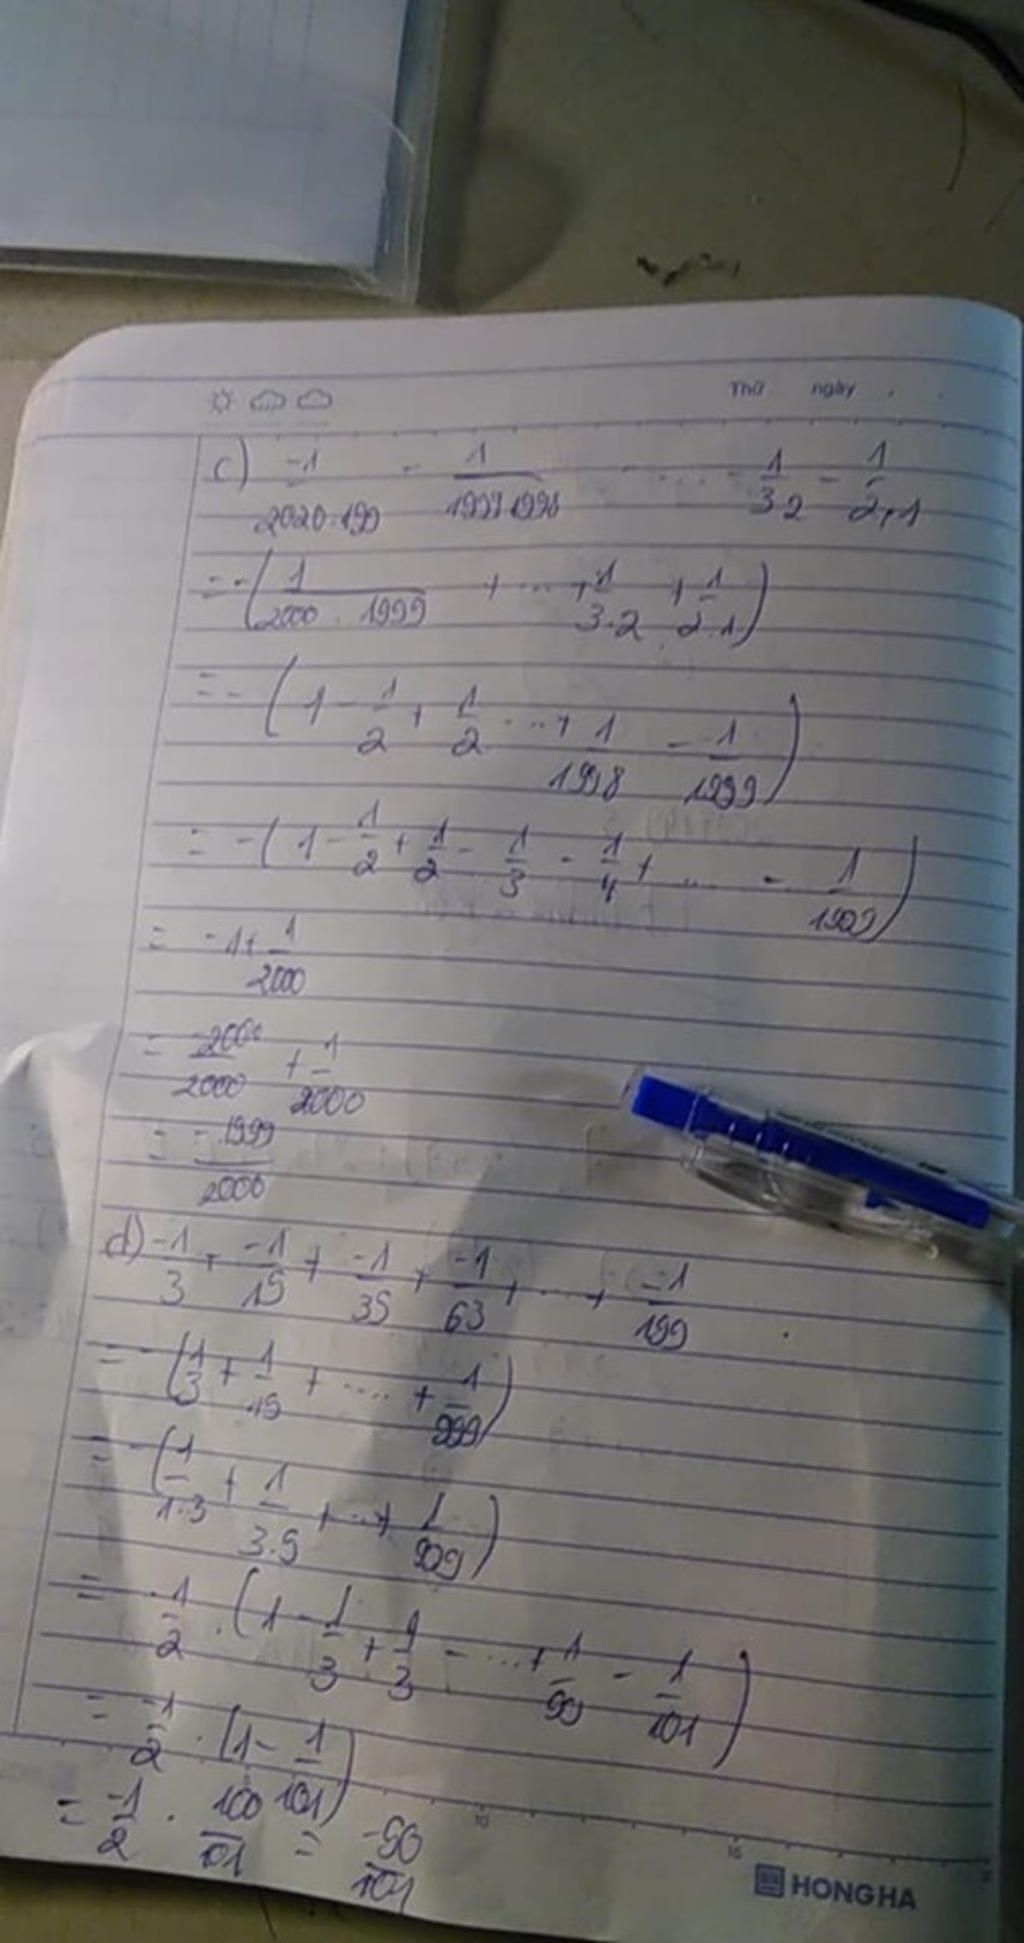 Thứ ngày
c) -1/2020.199 - 1/1999.1998 - ... - 1/3.2 - 1/2.1
= -(1/2000.1999 + ... + 1/3.2 + 1/2.1)
= -(1 - 1/2 + 1/2 ... + 1/1998 - 1/1999)
= -(1 - 1/2 + 1/2 - 1/3 - 1/4 + ... - 1/1999)
= -1 + 1/2000
= -2000/2000 + 1/2000
= -1999/2000
d) -1/3 + -1/15 + -1/35 + -1/63 + ... + -1/199
= -(1/3 + 1/15 + .... + 1/999)
= -(1/1.3 + 1/3.5 + ... + 1/999)
= -1/2 . (1 - 1/3 + 1/3 - ... + 1/99 - 1/101)
= -1/2 . (1 - 1/101)
= -1/2 . 100/101 = -50/101
10 15
HONG HA